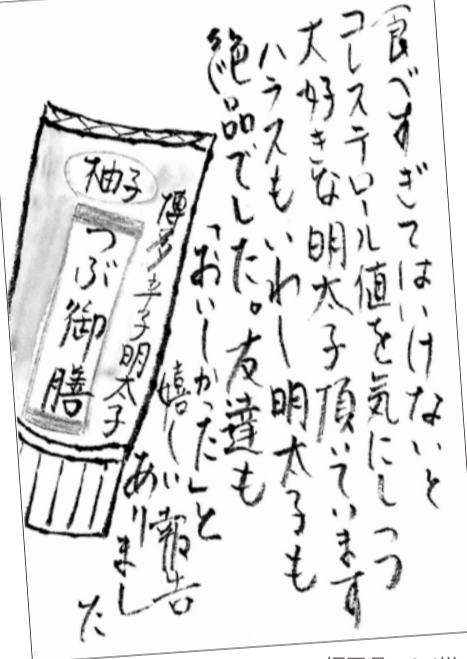 食べすぎてはいけないと
コレステロール値を気にしつつ
大好きな明太子頂いています
ハラスもいわし明太子も
絶品でした。友達も
「おいしかった」と
嬉しい報告
ありました
博多辛子明太子
柚子
つぶ御膳